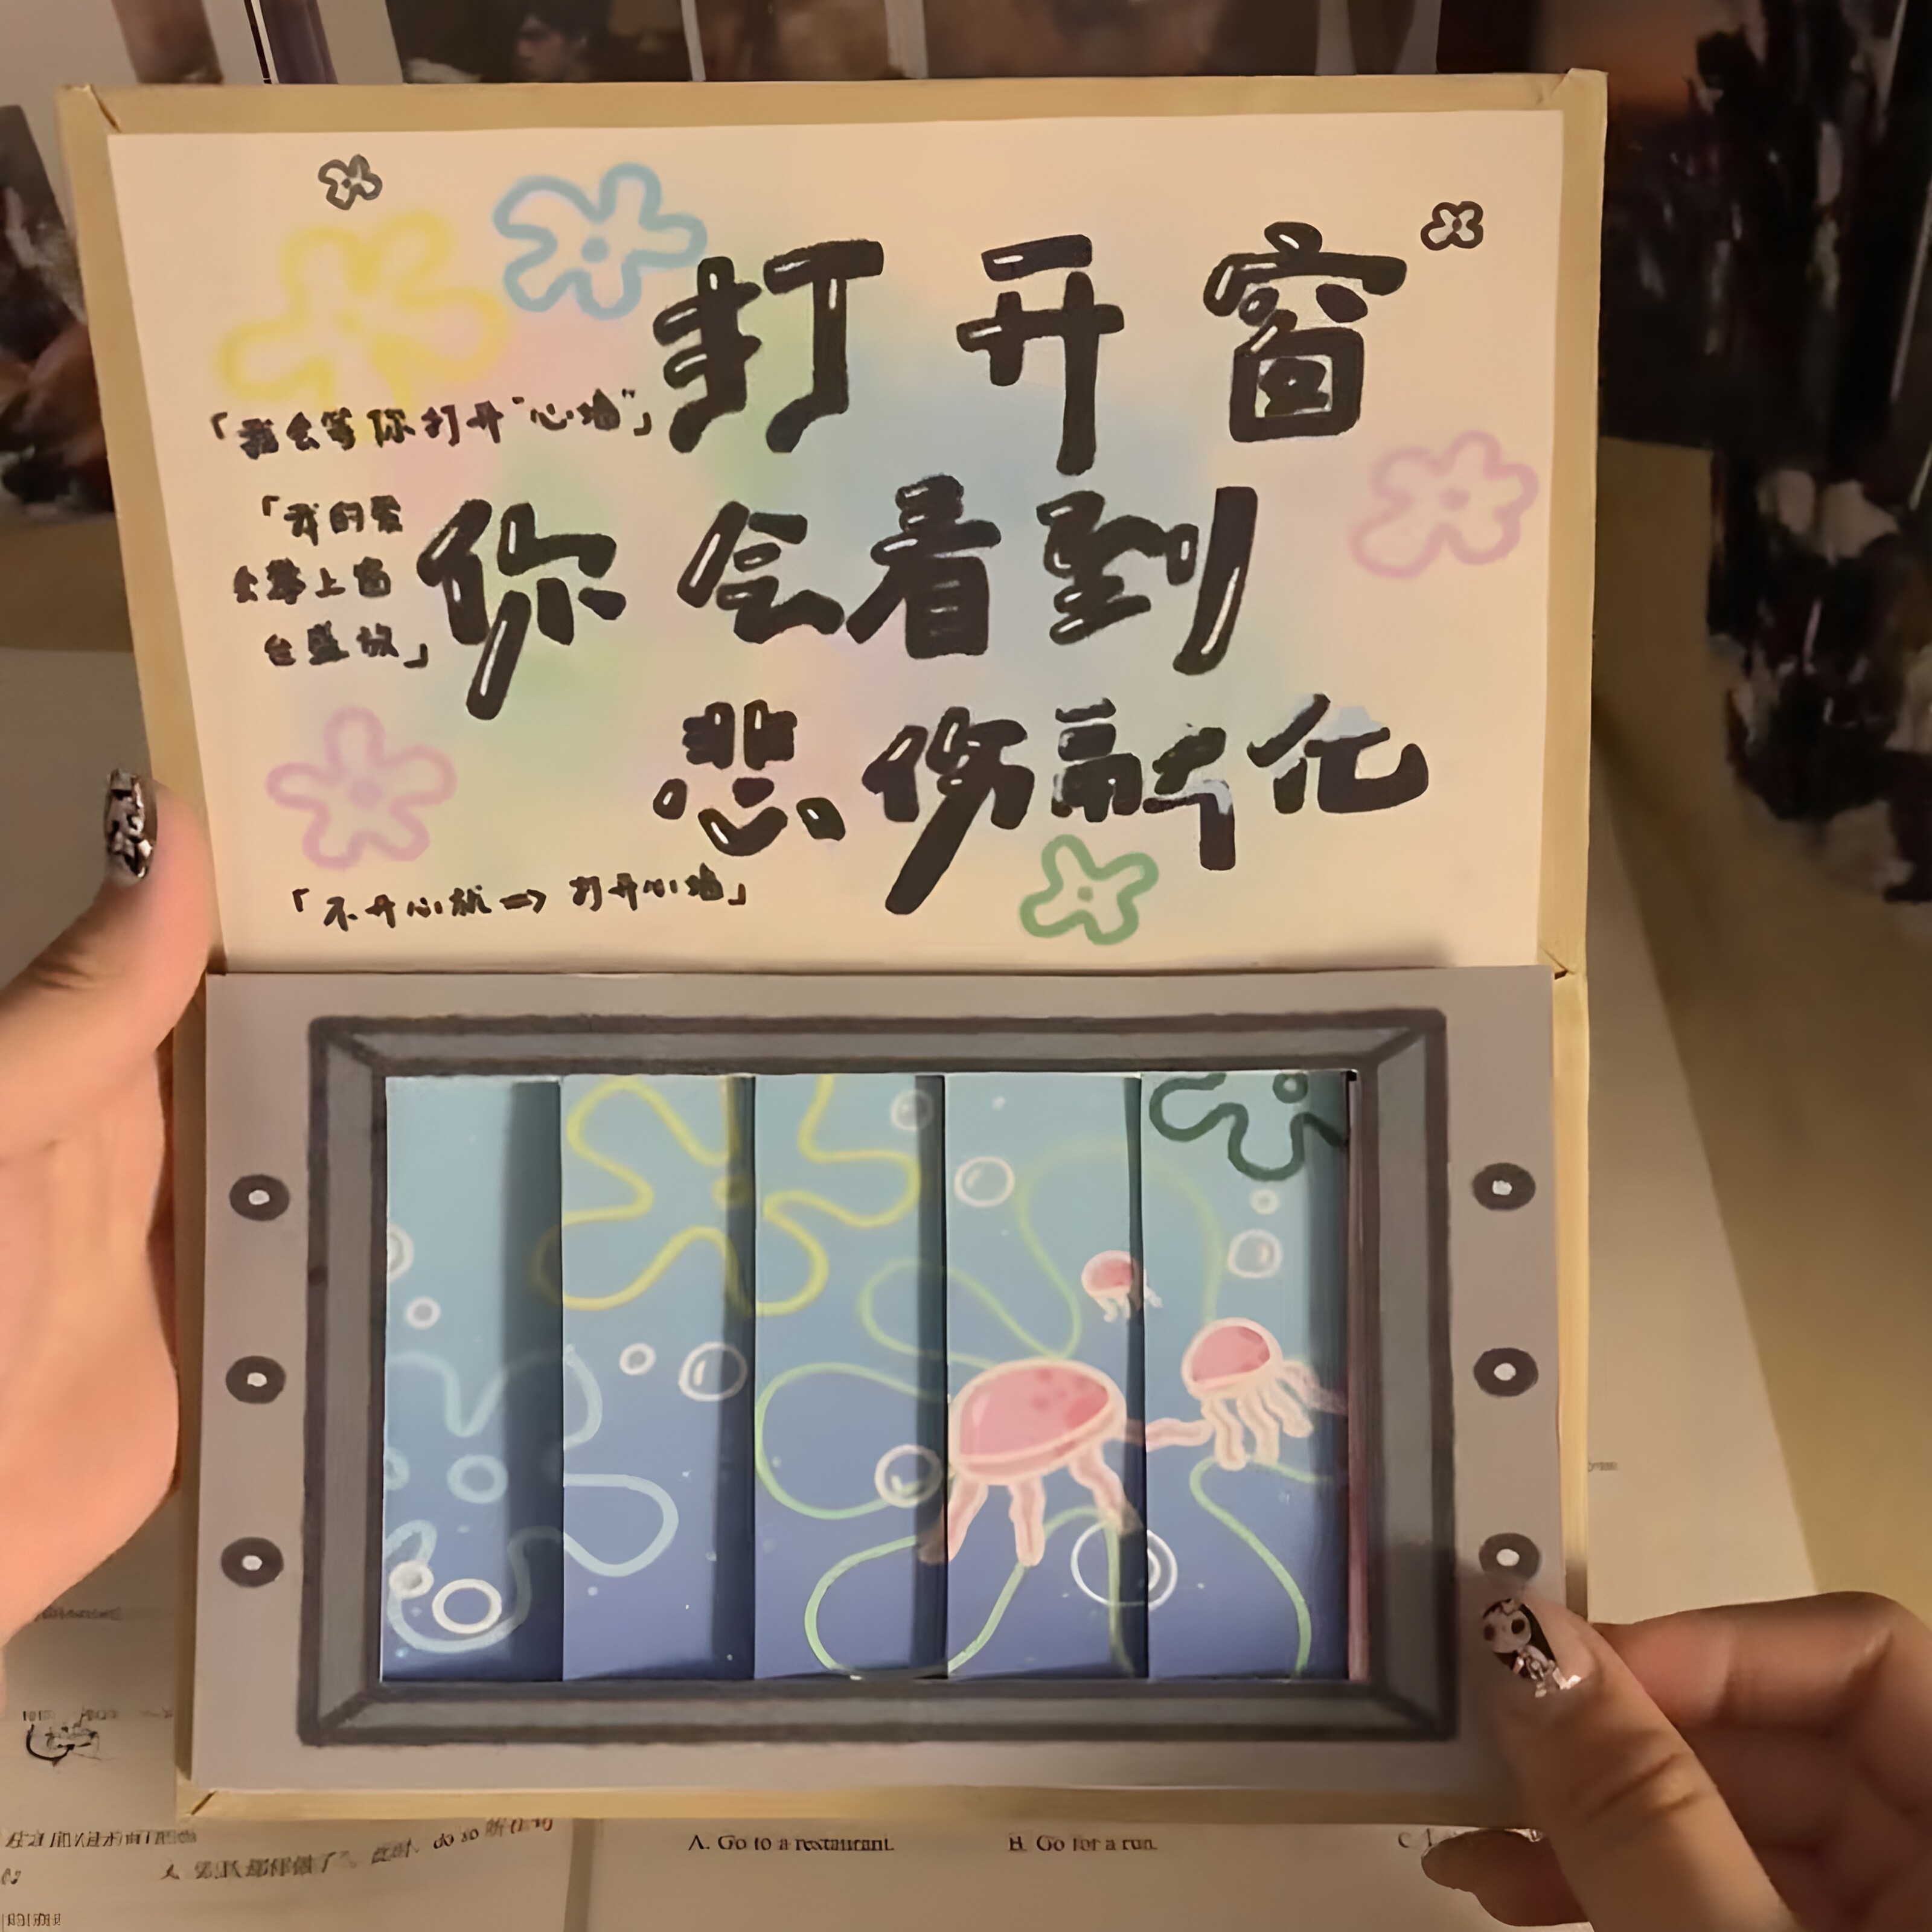 打开窗
「我会等你打开“心墙”」
你会看到
「我的爱
会攀上窗
台盛放」
悲伤融化
「不开心就=>打开心墙」
do so
A. Go to a restaurant.
B. Go for a run.